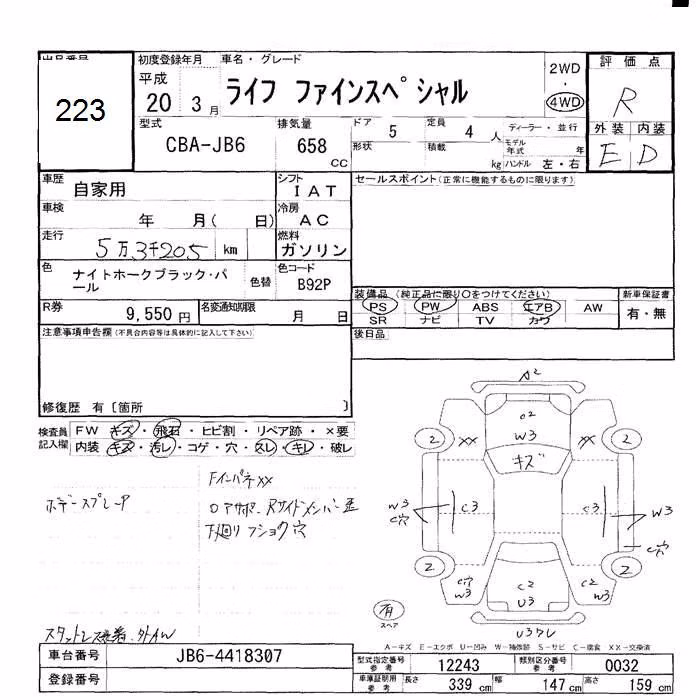 出品番号 初度登録年月 車名・グレード 2WD 評価点
223 平成 20 3月 ライフ ファインスペシャル ・ 4WD R
型式 CBA-JB6 排気量 658 CC ドア 5 定員 4 人 ディーラー・並行 外装 内装
形状 積載 kg モデル年式 年 ハンドル 左・右 E D
車歴 自家用 シフト IAT セールスポイント(正常に機能するものに限ります)
車検 年 月( 日) 冷房 AC
走行 5万3千205 km 燃料 ガソリン
色 ナイトホークブラック・パール 色替 色コード B92P
装備品 (純正品に限り○をつけてください) 新車保証書
PS PW ABS エアB AW 有・無
SR ナビ TV カワ
R券 9,550円 名変通知期限 月 日
注意事項申告欄(不具合内容等は具体的に記入して下さい) 後日品
修復歴 有 〔箇所 〕
検査員 FW キズ・飛石・ヒビ割・リペア跡・×要
記入欄 内装 キズ・汚レ・コゲ・穴・スレ・キレ・破レ
FインパネXX
ボデースプレーア
下廻りフショク穴
A2
O2
2 XX W3 XX 2
キズ
W3 C穴 C3 C3 W3
C穴
2 2
C穴 W3 C2 C2 W3
U3
有
スペア
A-キズ E-エクボ U-凹み W-補修跡 S-サビ C-腐食 XX-交換済
車台番号 JB6-4418307
登録番号
型式指定番号 参考 12243 類別区分番号 参考 0032
車庫証明用 参考 長さ 339 cm 幅 147 cm 高さ 159 cm